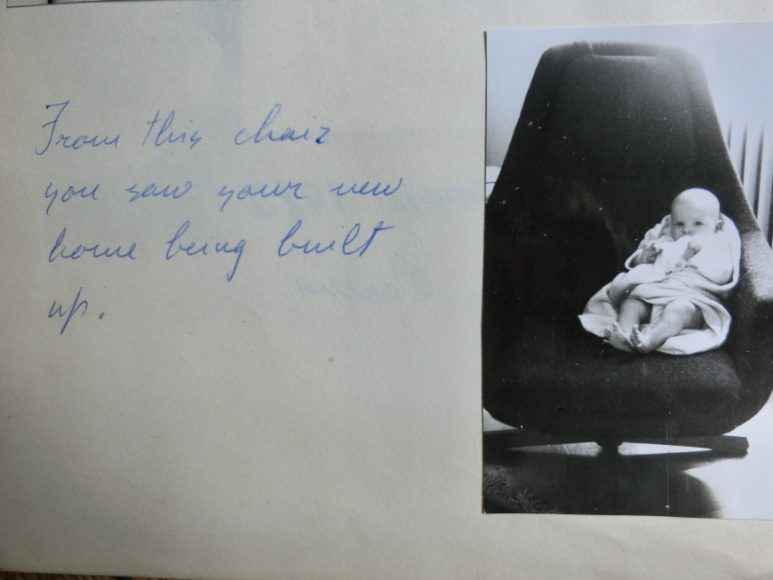 From this chair
you saw your new
home being built
up.